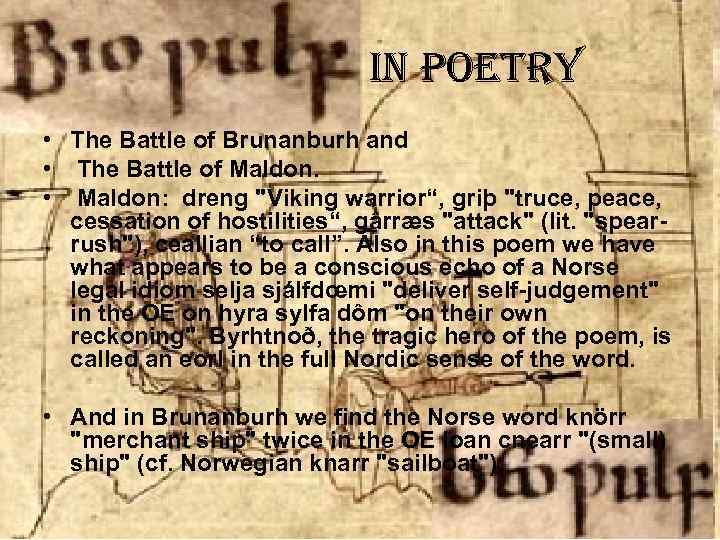 IN POETRY
• The Battle of Brunanburh and
• The Battle of Maldon.
• Maldon: dreng "Viking warrior“, griþ "truce, peace,
cessation of hostilities“, gârræs "attack" (lit. "spear-
rush"), ceallian “to call”. Also in this poem we have
what appears to be a conscious echo of a Norse
legal idiom selja sjálfdœmi "deliver self-judgement"
in the OE on hyra sylfa dôm "on their own
reckoning". Byrhtnoð, the tragic hero of the poem, is
called an eorl in the full Nordic sense of the word.
• And in Brunanburh we find the Norse word knörr
"merchant ship" twice in the OE loan cnearr "(small)
ship" (cf. Norwegian knarr "sailboat").